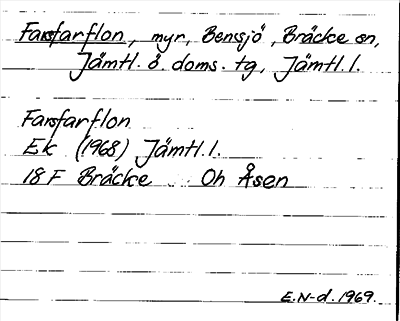 Fansfarflon, myr, Bensjö, Bräcke sn,
Jämtl. ö. doms. tg, Jämtl. l.
Fansfarflon
Ek (1968) Jämtl. l.
18 F Bräcke Oh Åsen
E.N-d. 1969.